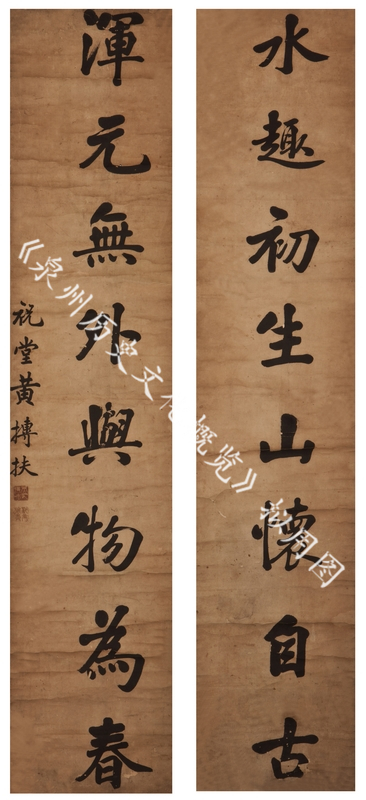 水趣初生山懷自古
渾元無外與物為春
祝堂黄摶扶
《泉州历史文化概览》试用图